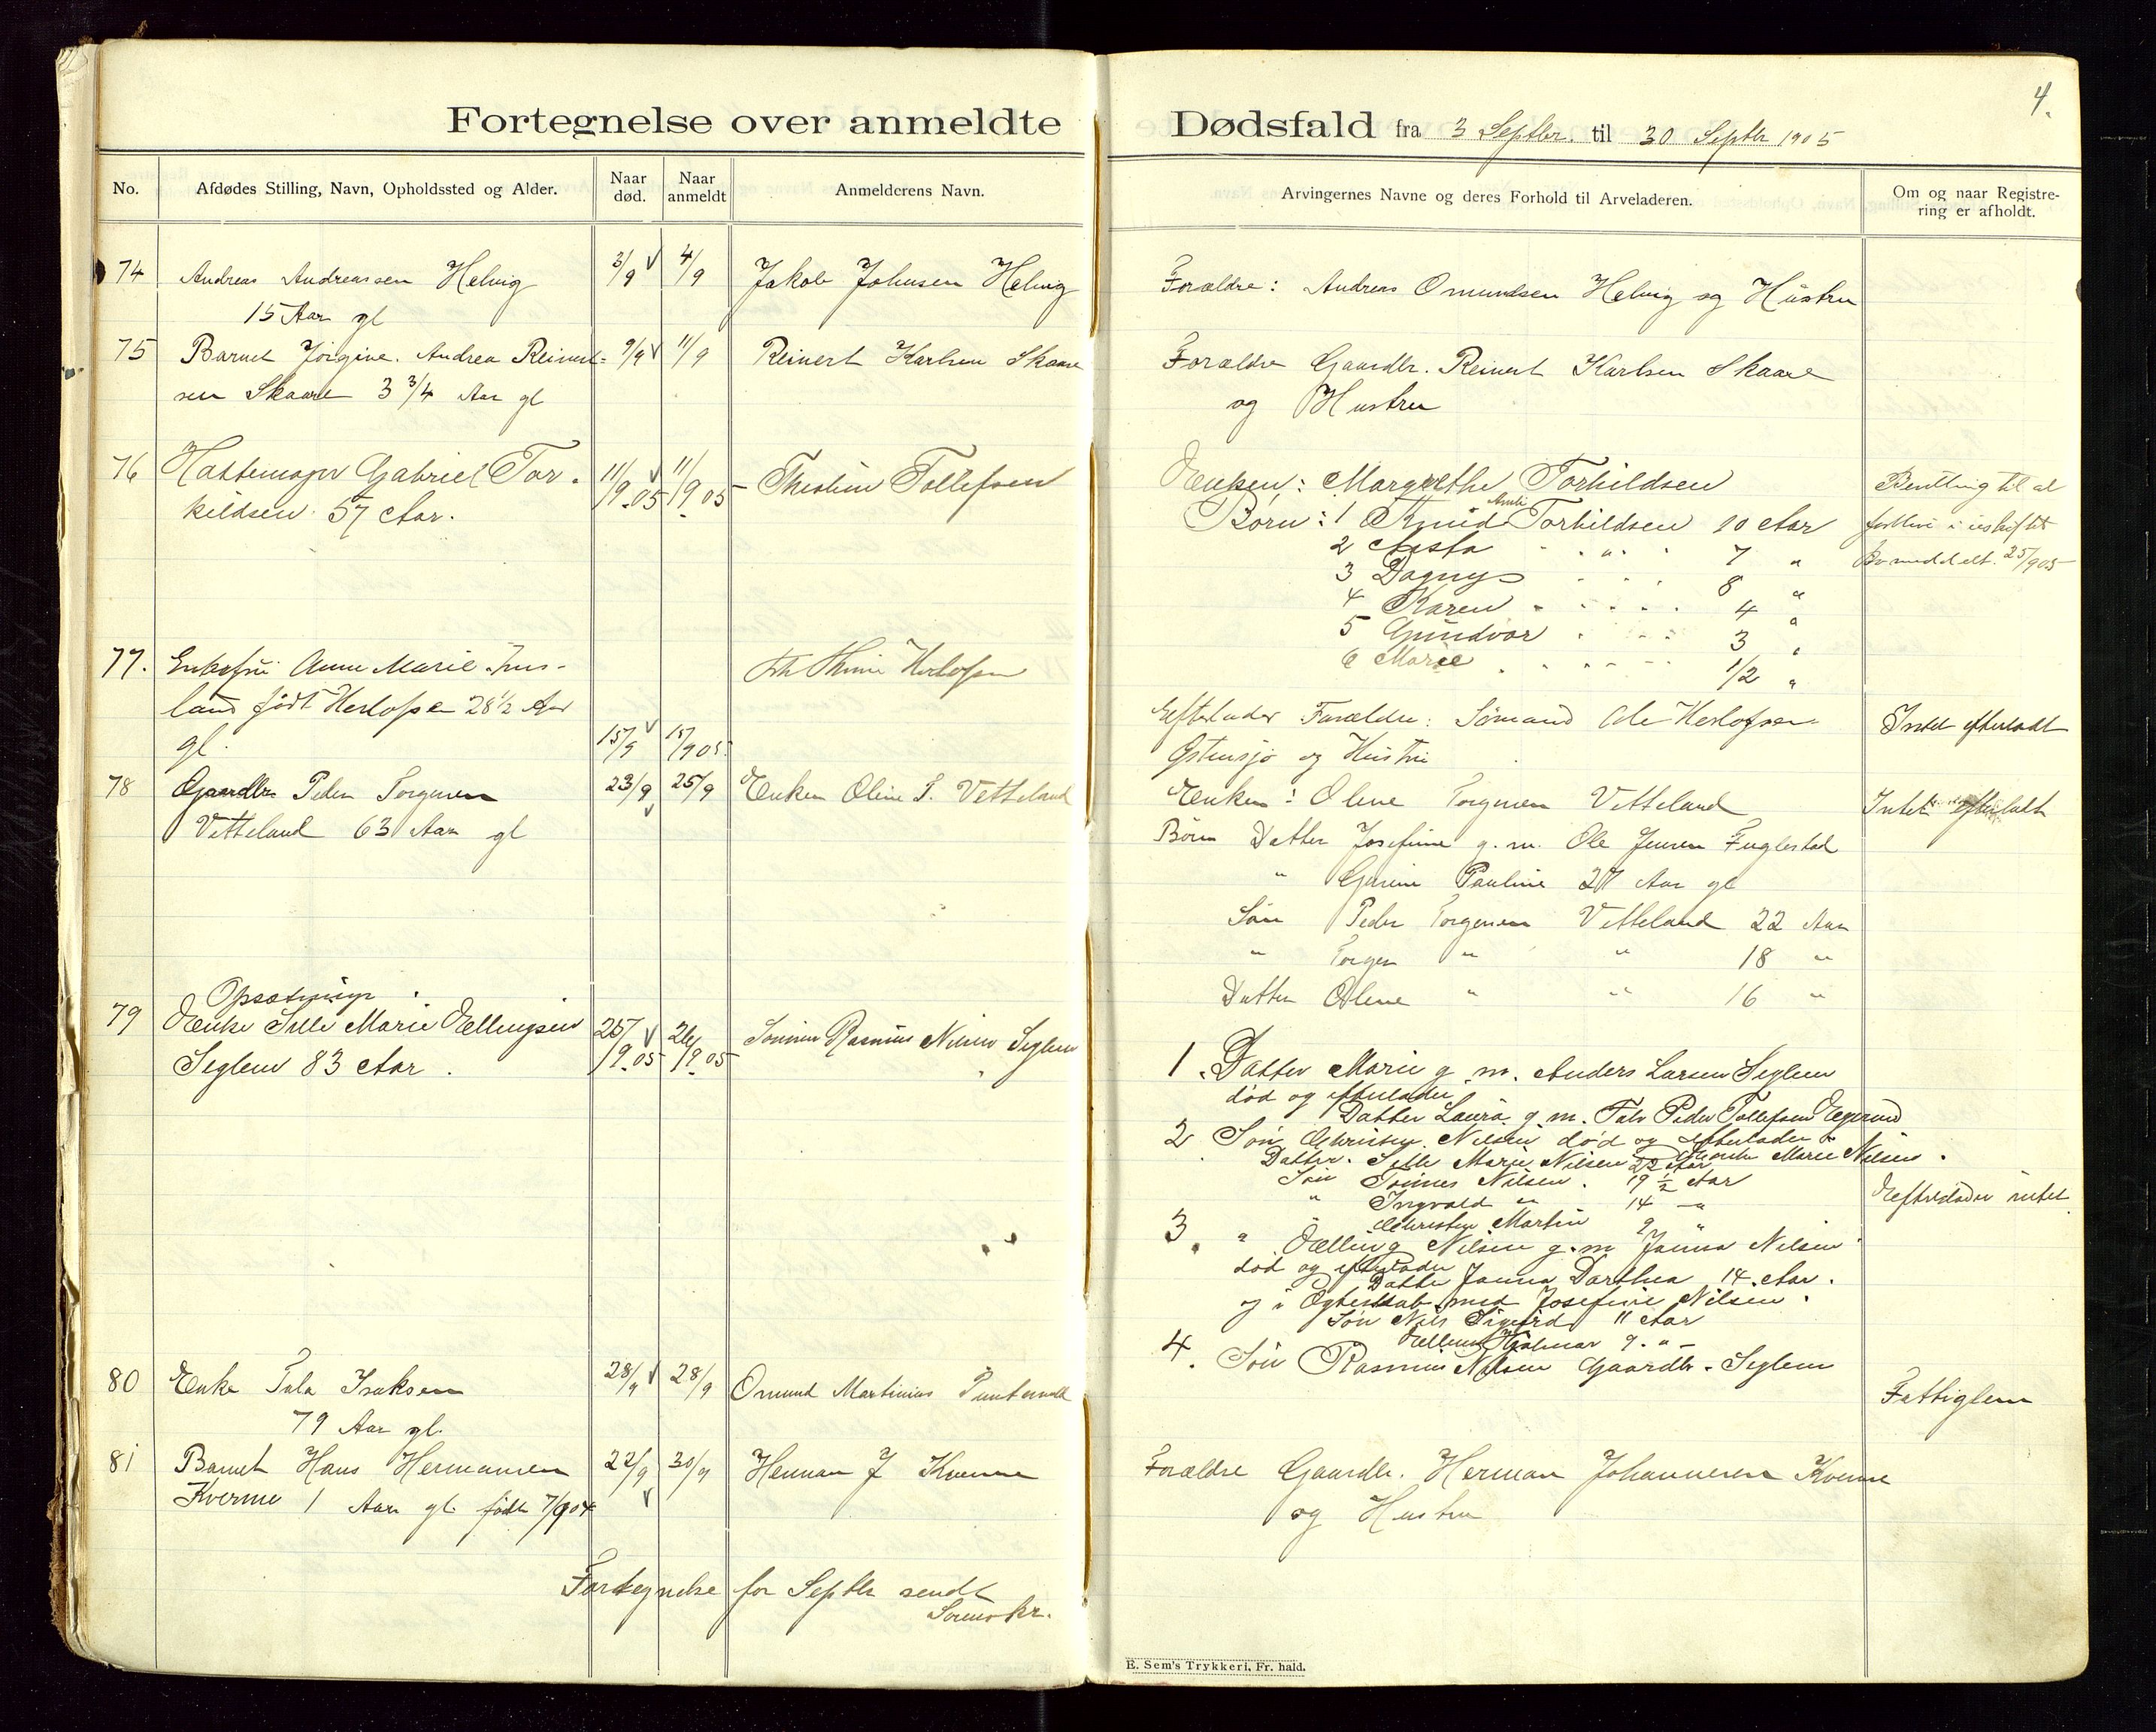 4.
Fortegnelse over anmeldte Dødsfald fra 3 Septbr. til 30 Septbr 1905
No.
Afdødes Stilling, Navn, Opholdssted og Alder.
Naar død.
Naar anmeldt
Anmelderens Navn.
Arvingernes Navne og deres Forhold til Arveladeren.
Om og naar Registre-
ring er afholdt.
74 Andreas Andreassen Helvig 3/9 4/9 Jakob Johnsen Helvig
15 Aar gl
Forældre: Andreas Omundsen Helvig og Hustru
75 Barnet Jørgine Andrea Reinert- 9/9 11/9 Reinert Karlsen Skaare
sen Skaare 3 3/4 Aar gl
Forældre Gaardbr. Reinert Karlsen Skaare
og Hustru
76 Hattemager Gabriel Tor- 11/9.05 11/9.05 Tollefsen
kildsen 57 Aar.
Enken: Margrethe Torkildsen
Børn: 1 Knud Torkildsen 10 Aar
2 Aasta " 7 "
3 Dagny " 8 "
4 Karen " 4 "
5 Gundvor " 3 "
6 Marie " 1/2 "
Bevilling til at
i uskiftet
Bo meddelt. 25/9 05
77. Enkefru Anne Marie
land født Herlofsen 28 1/2 Aar
gl. 15/9 15/9 05. Herlofsen
Efterlader Forældre: Sømand Ole Herlofsen
Østensjø og Hustru
Intet efterladt
78 Gaardbr Peder Torgersen 23/9 25/9 Enken Oline T. Vetteland
Vetteland 63 Aar gl
Enken: Oline Torgersen Vetteland
Børn Datter Josefine g. m. Ole Jensen Fuglestad
" Gurine Pauline 27 Aar gl
Søn Peder Torgersen Vetteland 22 Aar
" Torger " " 18 "
Datter Oline " " 16 "
Intet efterladt
79 Opsætning
Enke Sille Marie Ellingsen 25/9.05 26/9.05 Sønnen Rasmus Nilsen Seglem
Seglem 83 Aar.
1. Datter Marie g. m. Anders Larsen Seglem
død og efterlader
Datter Laura g. m. Peder Tollefsen Egersund
2 Søn Nilsen død og efterlader
Datter Sille Marie Nilsen 22 Aar Marie Nilsen.
Søn Tønnes Nilsen. 19 1/2 Aar
" Ingvald " 14 "
" Martin 9 "
3. " Elling Nilsen g. m. Janna Nilsen
død og efterlader
Datter Janna Dorthea 14 Aar.
og i Egteskab med Josefine Nilsen.
Søn Nils Sigurd 11 Aar
Elling Hjalmar 9 " -
4. Søn Rasmus Nilsen Gaardbr. Seglem
Efterlader intet
80 Enke Tala Isaksen 28/9 28/9 Omund Martinius Puntervold
79 Aar gl.
Fattiglem
81 Barnet Hans Hermansen 22/9 30/9 Herman J Kverme
Kverme 1 Aar gl. født 7/9 04
Forældre Gaardbr. Herman Johannesen Kverme
og Hustru
Fortegnelse for Septbr sendt
Sorenskr.
E. Sem's Trykkeri, Fr. hald.